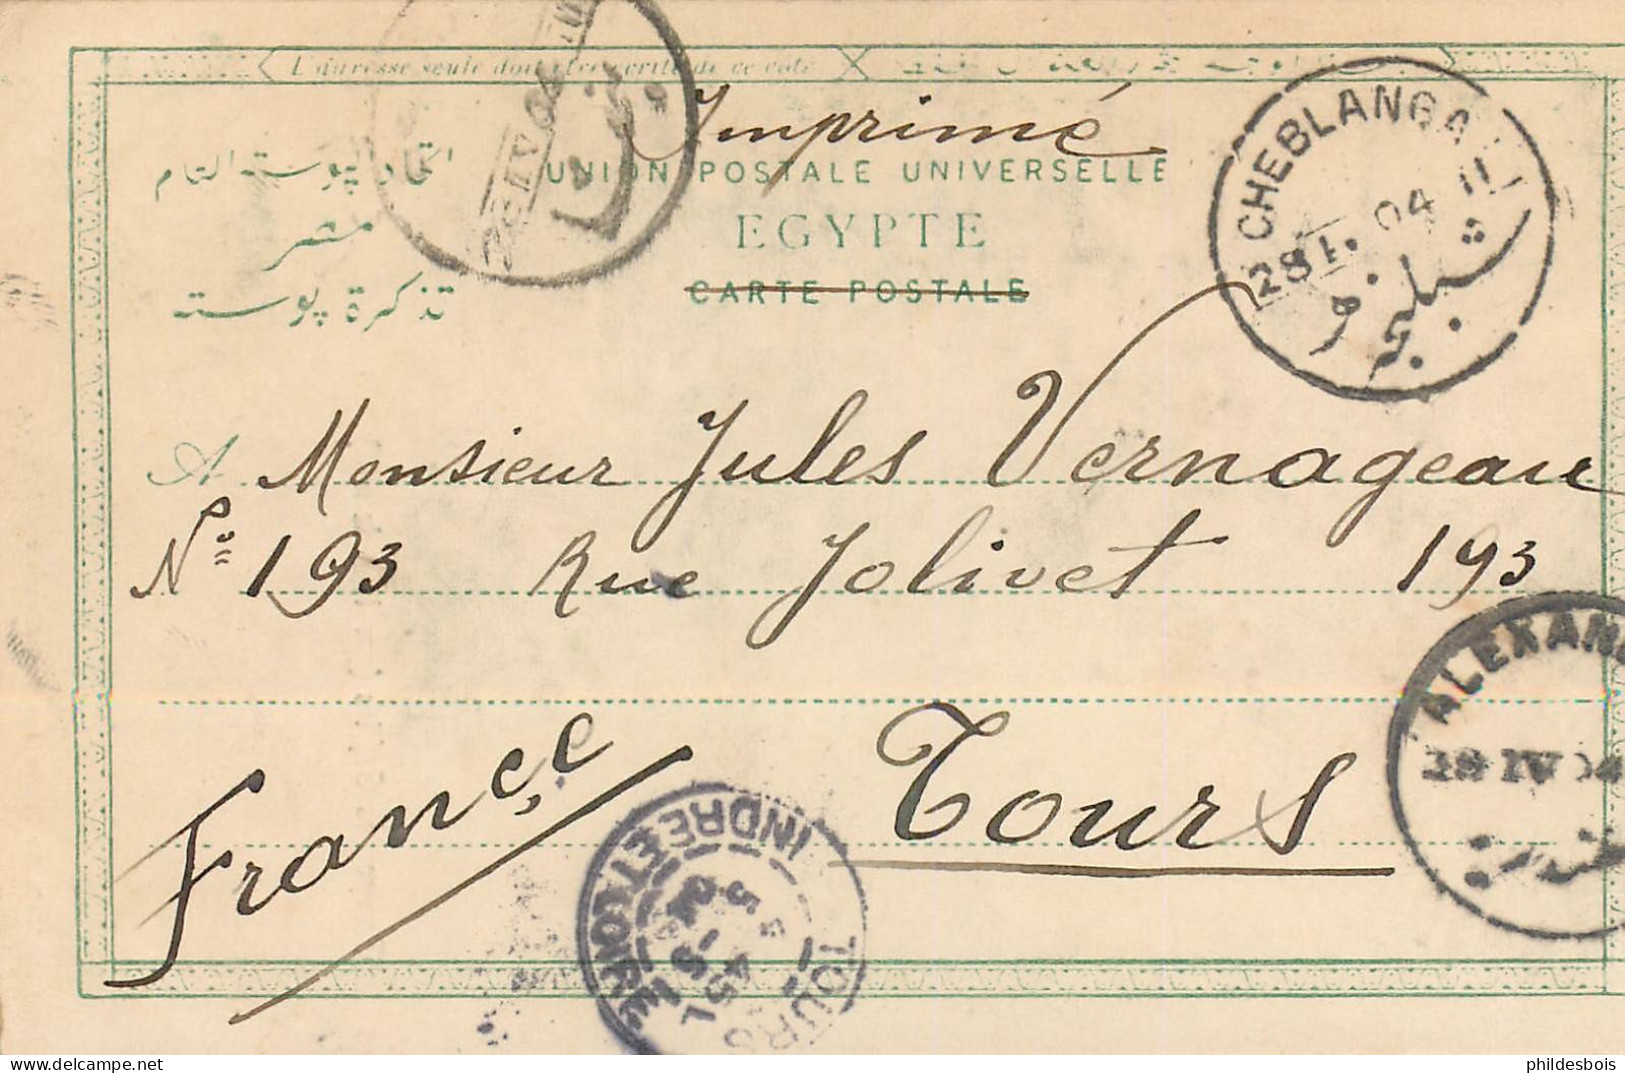 L'adresse seule doit être écrite de ce côté
Imprimé
اتحاد پوسته العام
UNION POSTALE UNIVERSELLE
مصر
EGYPTE
تذكرة پوسته
CARTE POSTALE
CHEBLANGA
28 I. 04 II
IV 04
A Monsieur Jules Vernageau
No 193 Rue Jolivet 193
Tours
France
ALEXAN
28 IV 04
TOURS
INDRE ET LOIRE
phildesbois